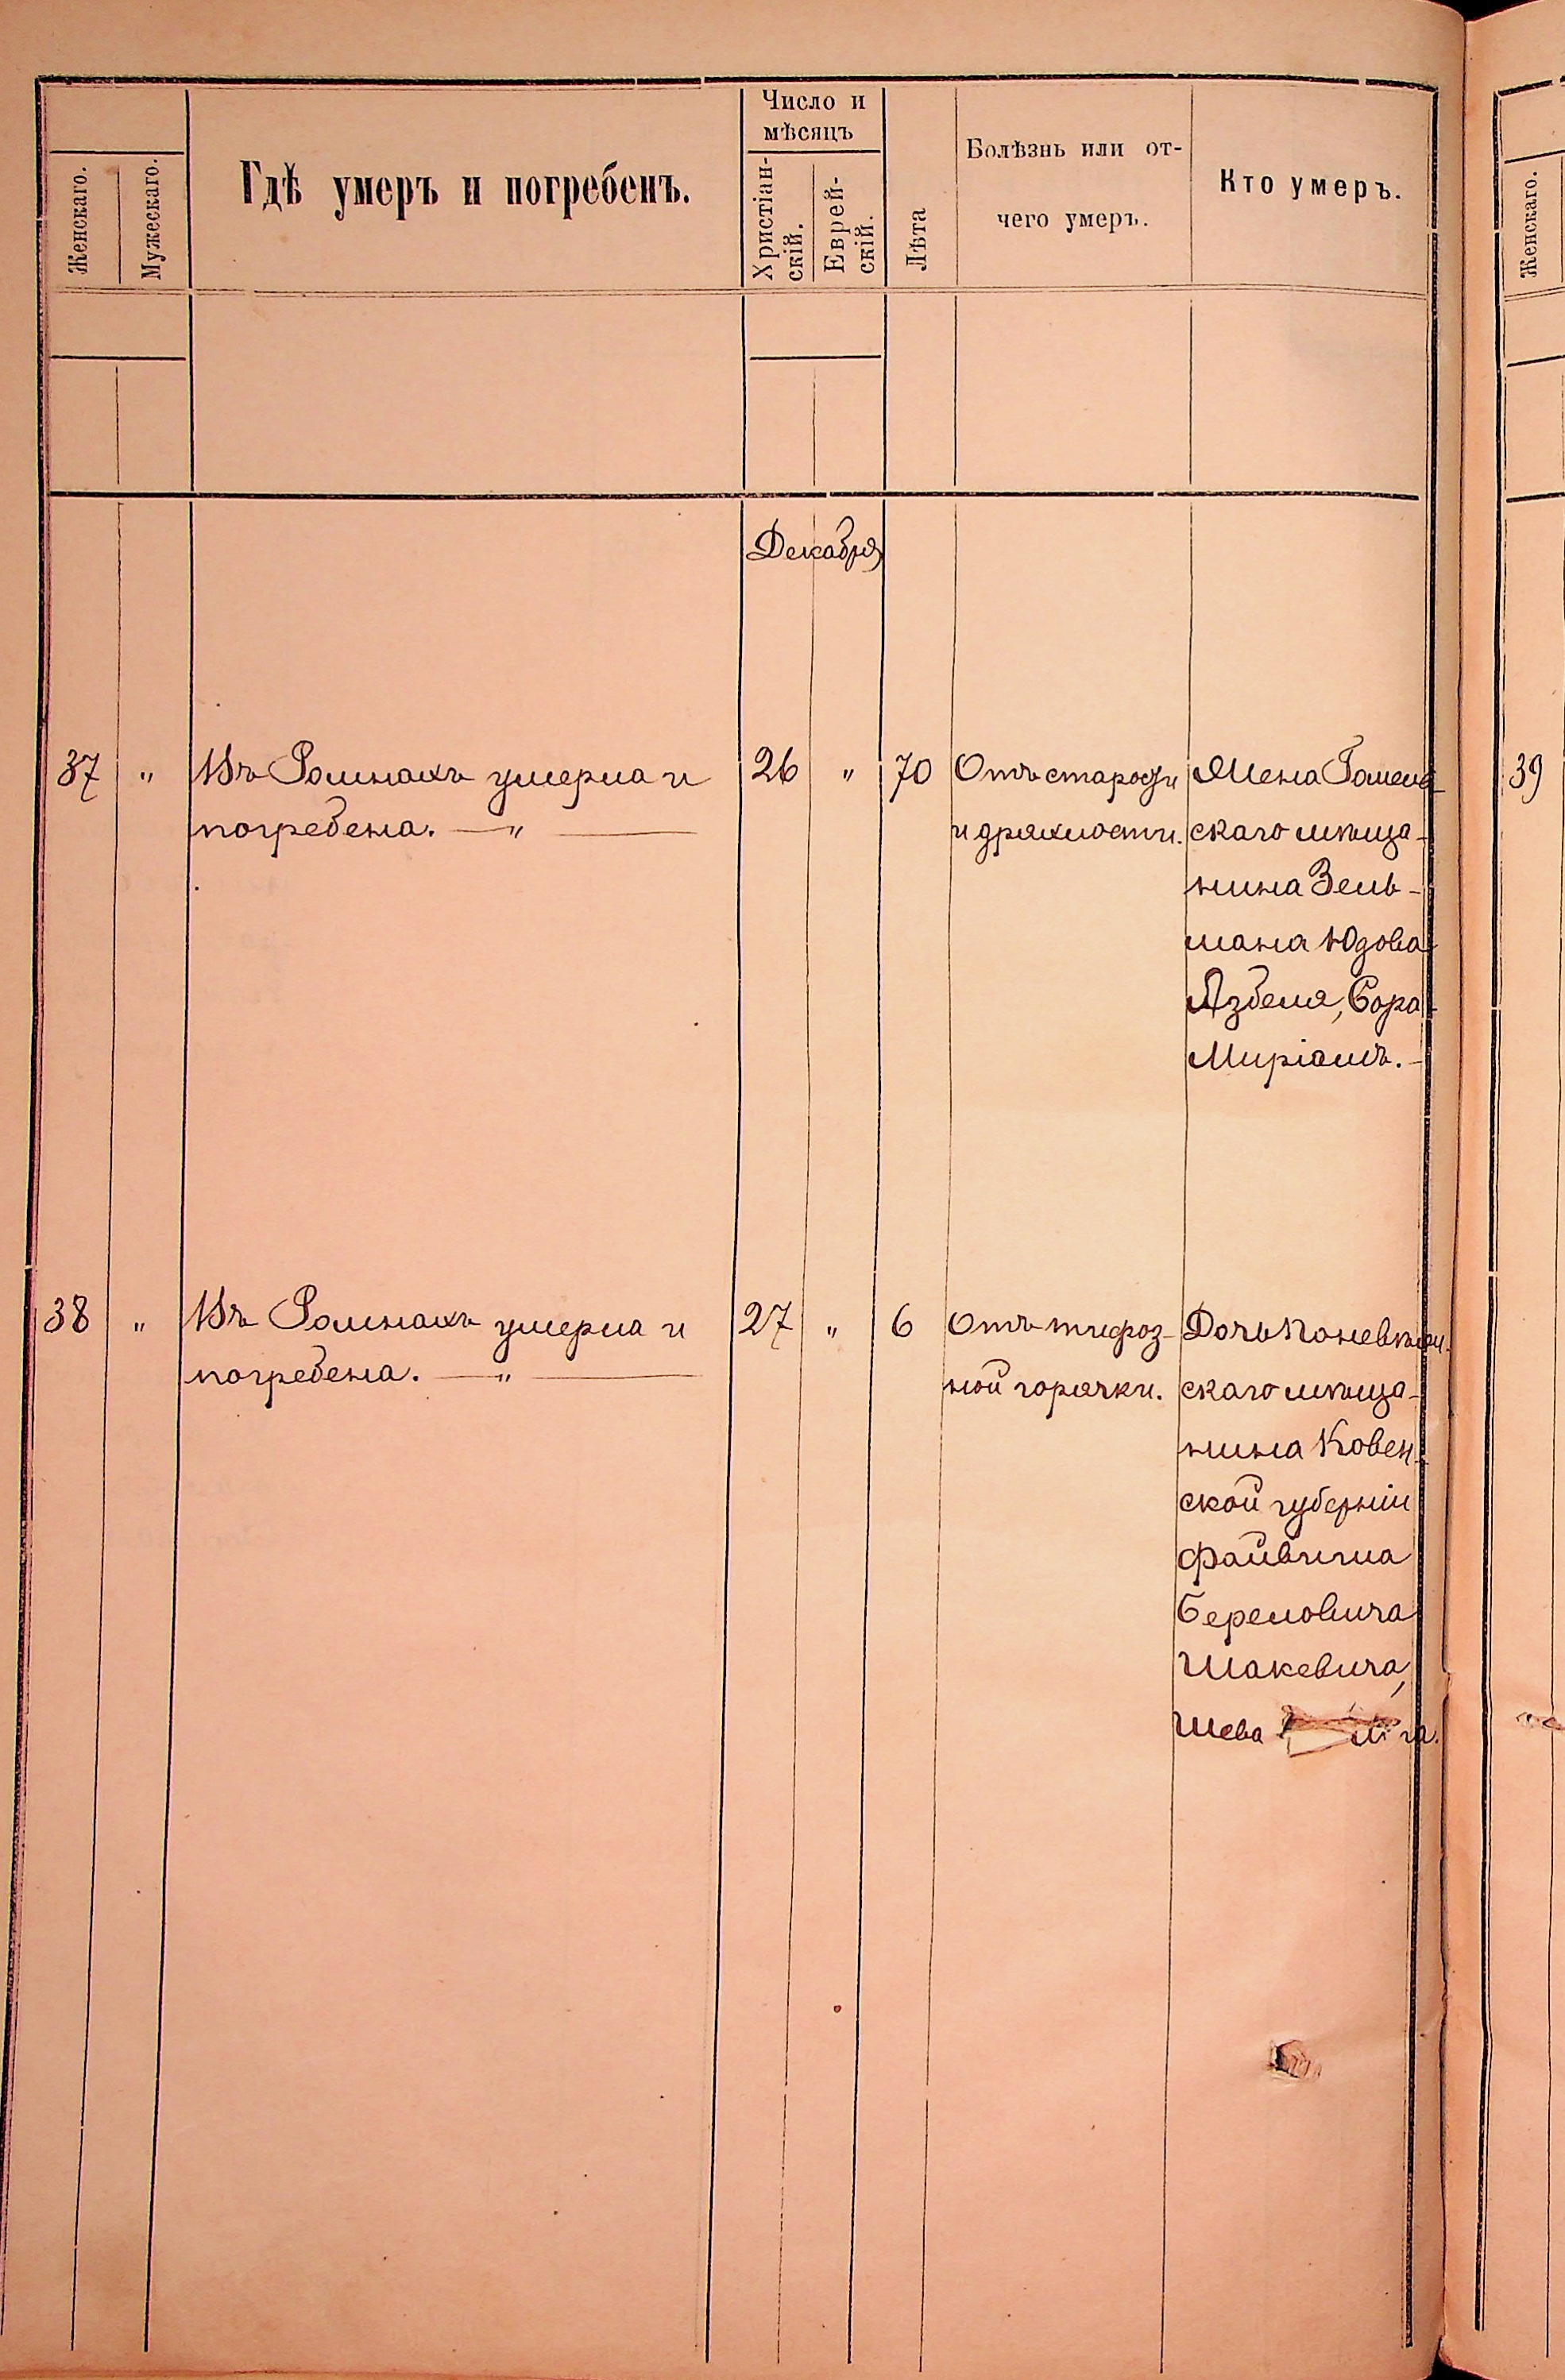 Женскаго.
Мужескаго.
Гдѣ умеръ и погребенъ.
Число и
мѣсяцъ
Христіан-
скій.
Еврей-
скій.
Лѣта
Болѣзнь или от-
чего умеръ.
Кто умеръ.
Женскаго.
Декабря
37 " Въ Ромнахъ умерла и
погребена. — " —
26 " 70
Отъ старости
и дряхлости.
Жена Гомель-
скаго мѣща-
нина Зель-
мана Юдова
Язбеля, Сора
Миріамъ. -
39
38 " Въ Ромнахъ умерла и
погребена. — " —
27 " 6
Отъ тифоз-
ной горячки.
Дочь Поневѣж-
скаго мѣща-
нина Ковен-
ской губерніи
Файвиша
Береловича
Шакевича,
Шева